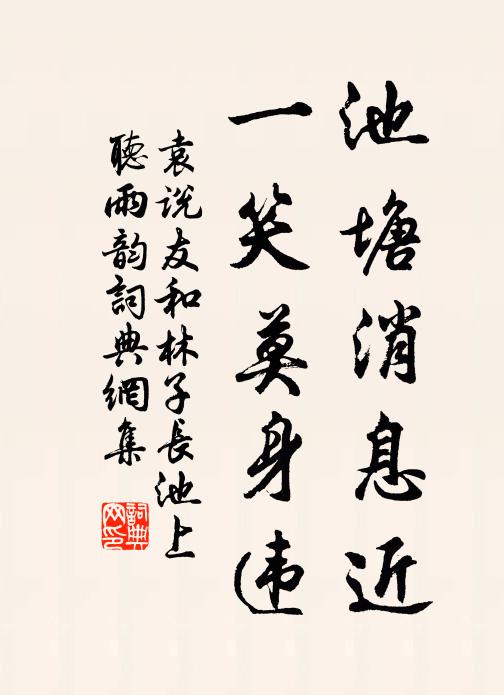 池塘消息近
一笑莫身违
袁说友和林子長池上
聽雨韵詞典網集
詞典
网印